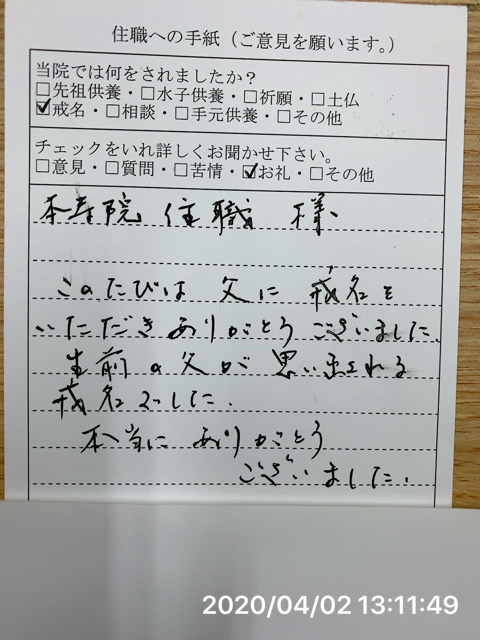 住職への手紙（ご意見を願います。）
当院では何をされましたか？
□先祖供養・□水子供養・□祈願・□土仏
☑戒名・□相談・□手元供養・□その他
チェックをいれ詳しくお聞かせ下さい。
□意見・□質問・□苦情・☑お礼・□その他
本寿院 住職 様
このたびは 父に 戒名を
いただき ありがとう ございました。
生前の父が 思い出される
戒名でした。
本当に ありがとう
ございました。
2020/04/02 13:11:49